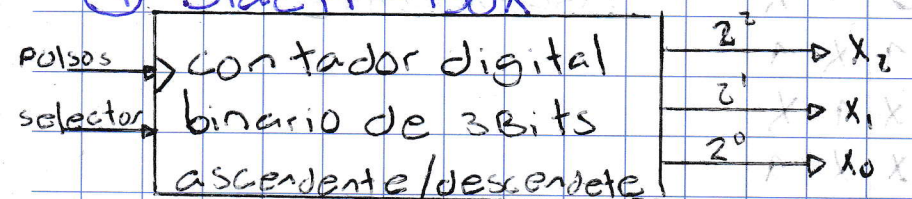 ① Black Box
pulsos
selector
contador digital
binario de 3Bits
ascendente/descendete
2² X₂
2¹ X₁
2⁰ X₀